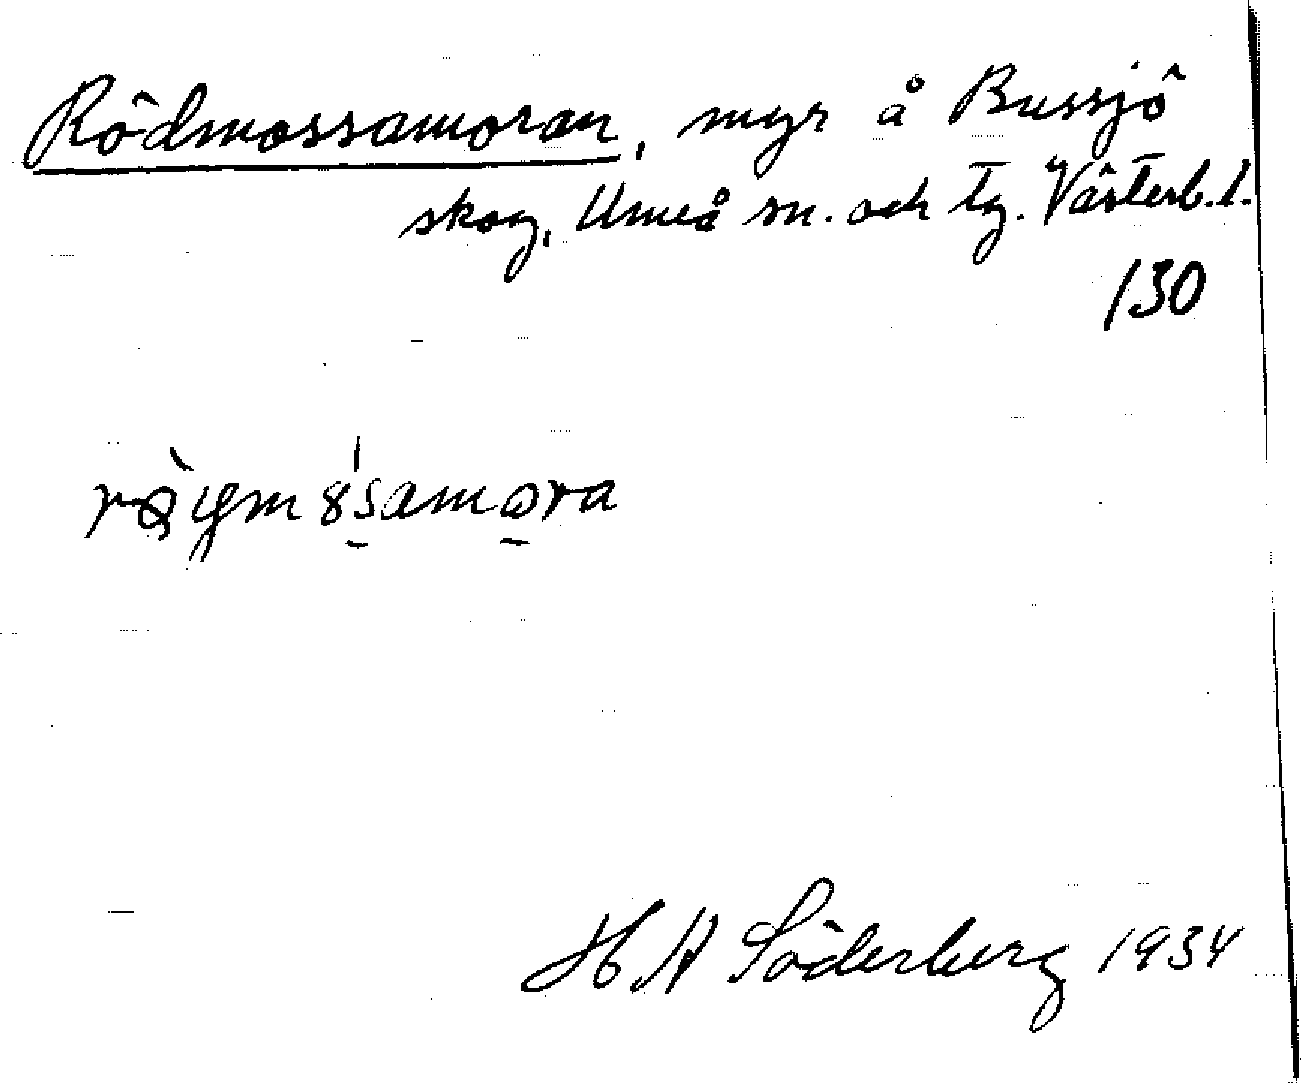 Rödmossamoran, myr å Bussjö
skog, Umeå sn. och tg. Västerb. l.
130
H A Söderberg 1934